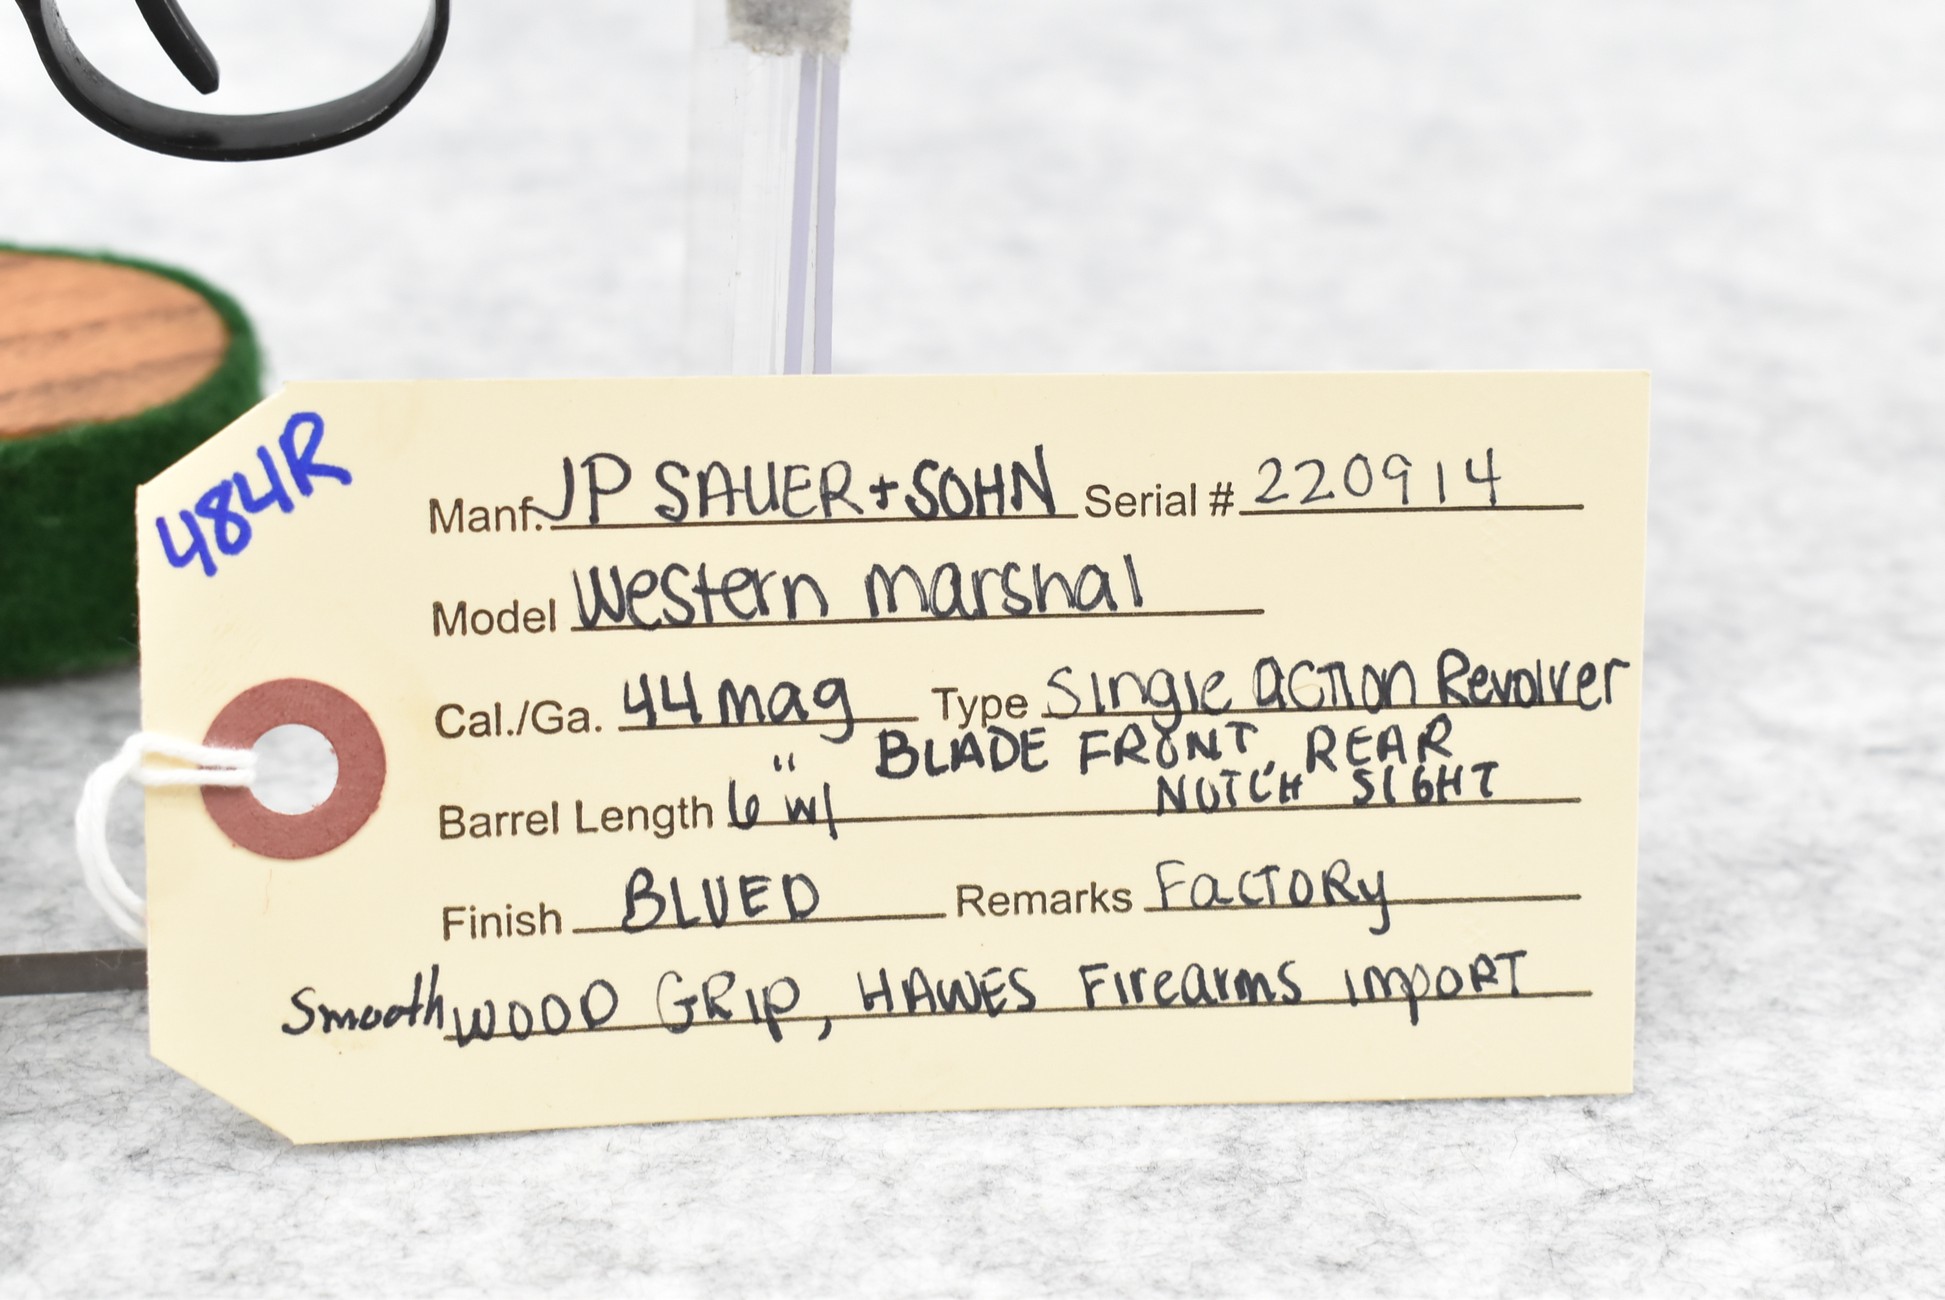 484R
Manf. JP SAUER + SOHN Serial # 220914
Model Western Marshal
Cal./Ga. 44 mag Type Single action Revolver
BLADE FRONT, REAR
Barrel Length 6" w/ NOTCH SIGHT
Finish BLUED Remarks Factory
Smooth WOOD GRip, HAWES Firearms import